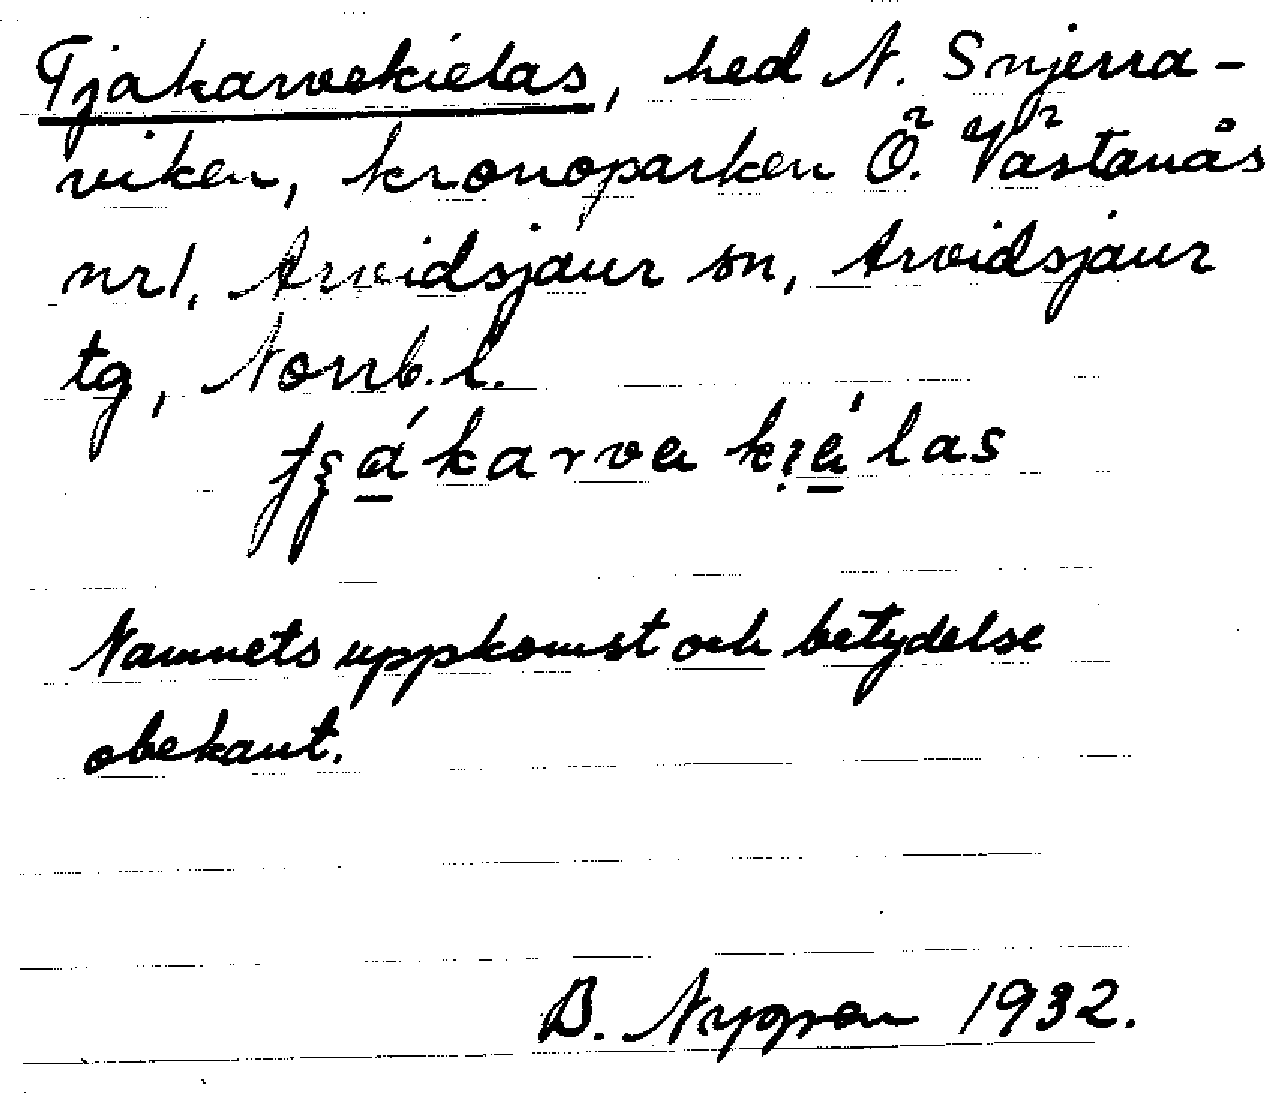 Tjakarvekielas, hed N. Snjerra-
viken, kronoparken Ö. Västanås
nr 1, Arvidsjaur sn, Arvidsjaur
tg, Norrb. l.
Namnets uppkomst och betydelse
obekant.
B. Nygren 1932.